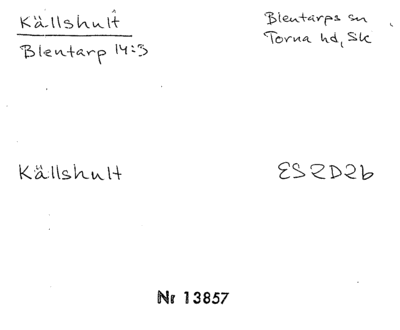 Källshult
Blentarps sn
Blentarp 14:3
Torna hd, Sk
Källshult
ES2D2b
Nr 13857